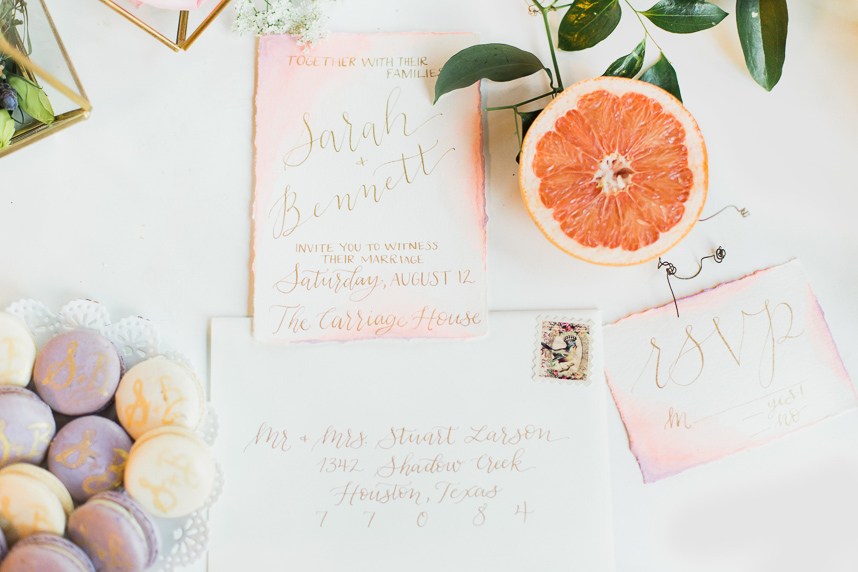 TOGETHER WITH THEIR
FAMILIES
Sarah
+
Bennett
INVITE YOU TO WITNESS
THEIR MARRIAGE
Saturday, AUGUST 12
The Carriage House
Mr + Mrs. Stuart Larson
1342 Shadow Creek
Houston, Texas
7 7 0 8 4
rsvp
M
yes!
no
S+B
S+B